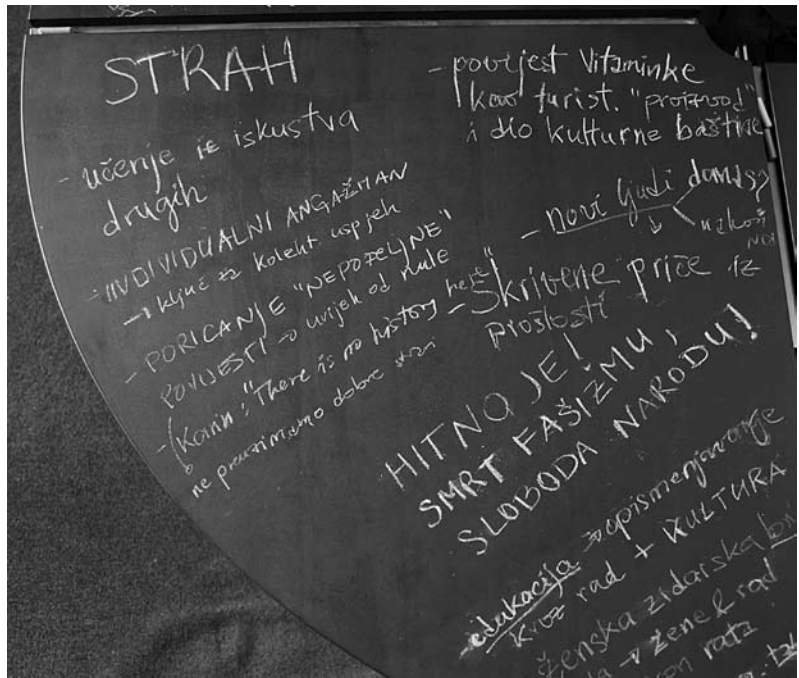 STRAH
- učenje iz iskustva
drugih
- INDIVIDUALNI ANGAŽMAN
→ ključ za kolekt uspjeh
- PORICANJE "NEPOŽELJNE"
POVIJESTI → uvijek od nule
- (Karin: "There is no history here"
ne preuzimamo dobre
- povijest Vitaminke
kao turist. "proizvod"
i dio kulturne baštine
- novi ljudi danas
- Skrivene priče iz
prošlosti
HITNO JE!
SMRT FAŠIZMU,
SLOBODA NARODU!
- edukacija → opismenjavanje
kroz rad + KULTURA
ženska zidarska
→ žene & rad
rata